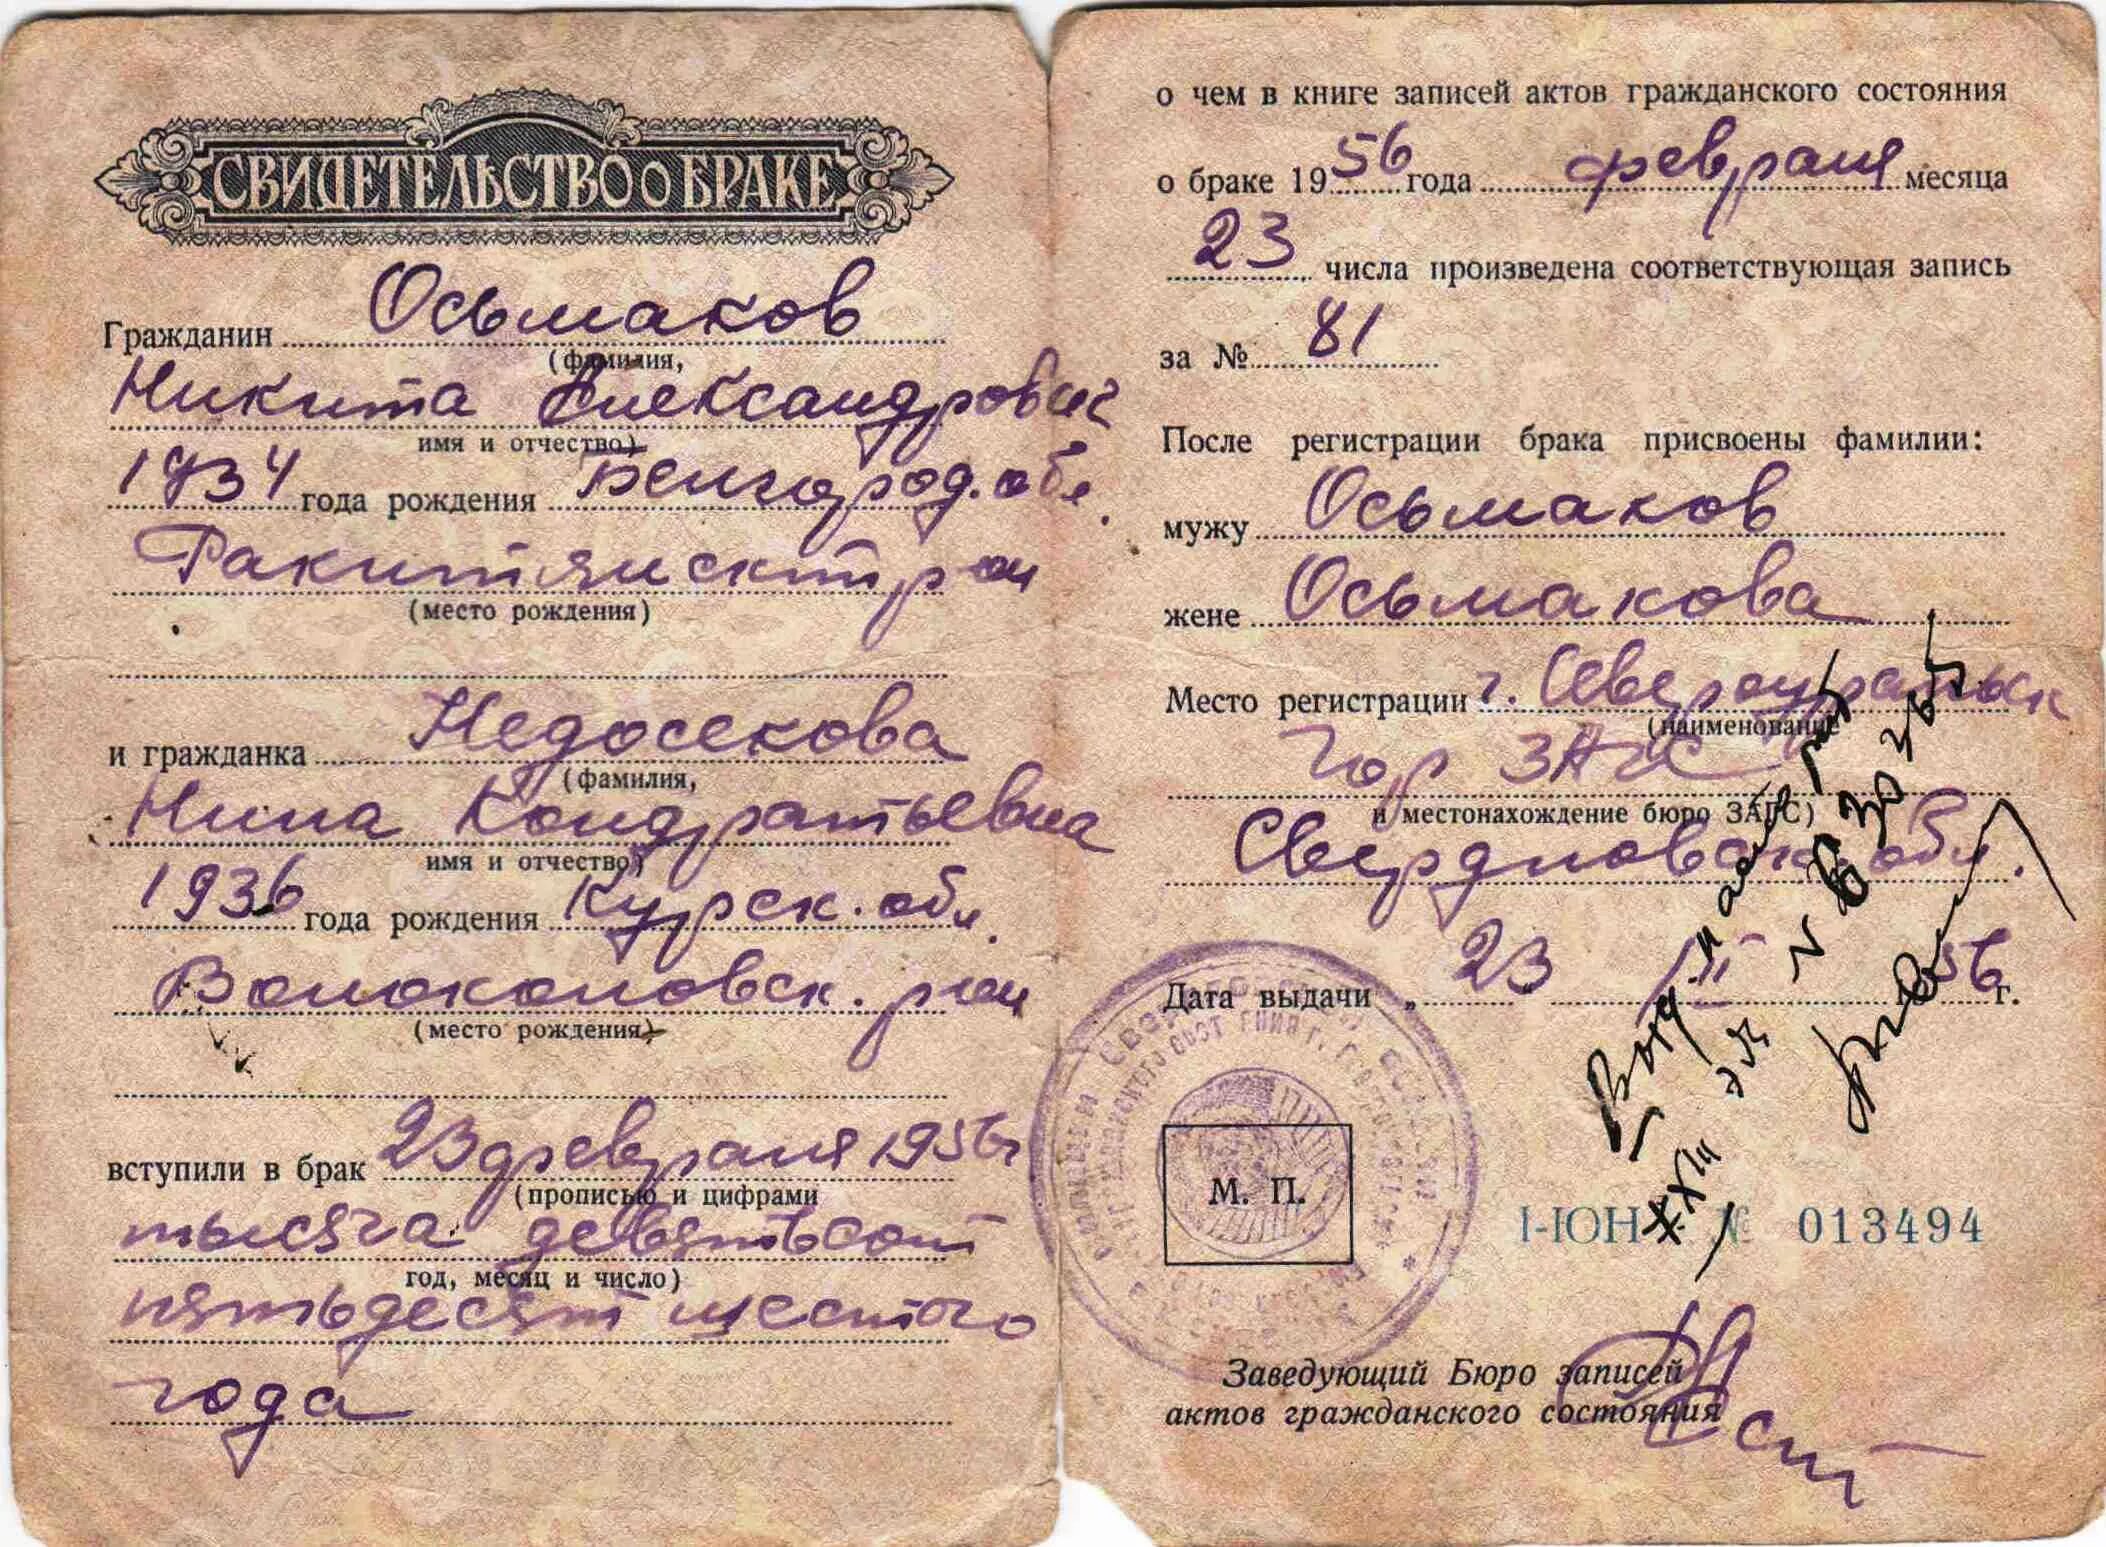 СВИДЕТЕЛЬСТВО о БРАКЕ
Гражданин Осьмаков
(фамилия,
Никита Александрович
имя и отчество)
1934 года рождения Белгород. обл.
Ракитянск рон
(место рождения)
и гражданка Недосекова
(фамилия,
Нина Кондратьевна
имя и отчество)
1936 года рождения Курск. обл.
Волоконовск. рон
(место рождения)
вступили в брак 23 февраля 1956 г
(прописью и цифрами
тысяча девятьсот
год, месяц и число)
пятьдесят шестого
года
о чем в книге записей актов гражданского состояния
о браке 1956 года февраля месяца
23 числа произведена соответствующая запись
за № 81
После регистрации брака присвоены фамилии:
мужу Осьмаков
жене Осьмакова
Место регистрации г. Североуральск
(наименование
Гор ЗАГС
и местонахождение бюро ЗАГС)
Свердловск. обл.
Дата выдачи „23" II 1956 г.
М. П.
I-ЮН № 013494
Заведующий Бюро записей
актов гражданского состояния